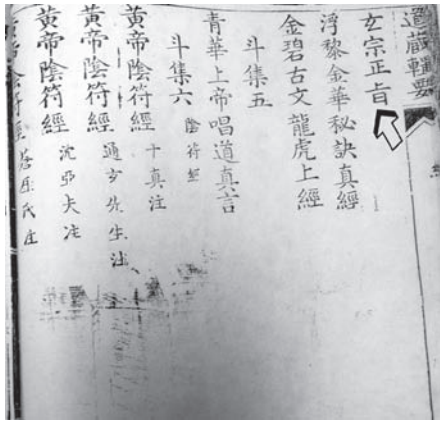 道藏輯要
玄宗正旨
浮黎金華秘訣真經
金碧古文龍虎上經
斗集五
青華上帝唱道真言
斗集六
陰符經
黃帝陰符經 十真注
黃帝陰符經 通玄先生注
黃帝陰符經 沈亞夫注
陰符經 蒼厓氏注